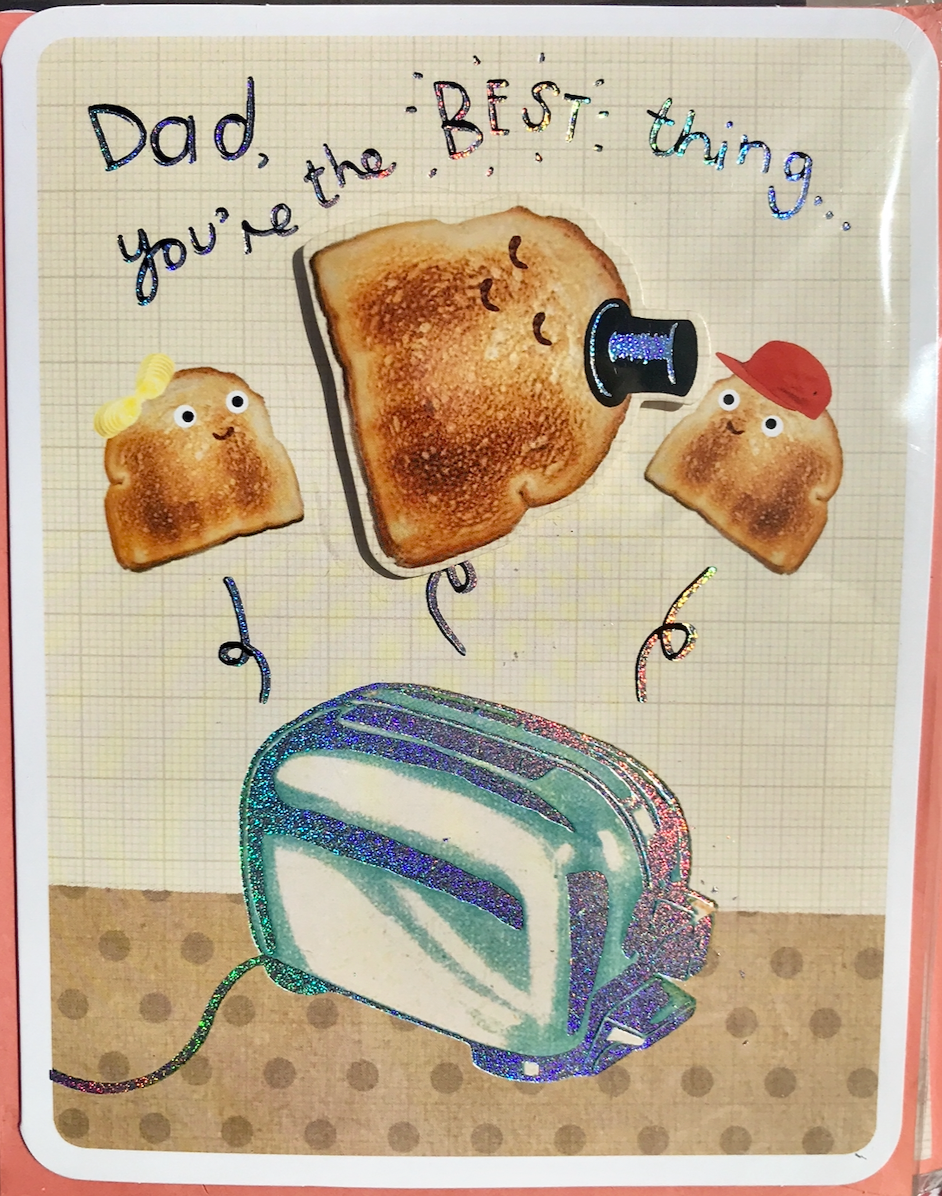 Dad,
you're the BEST thing...